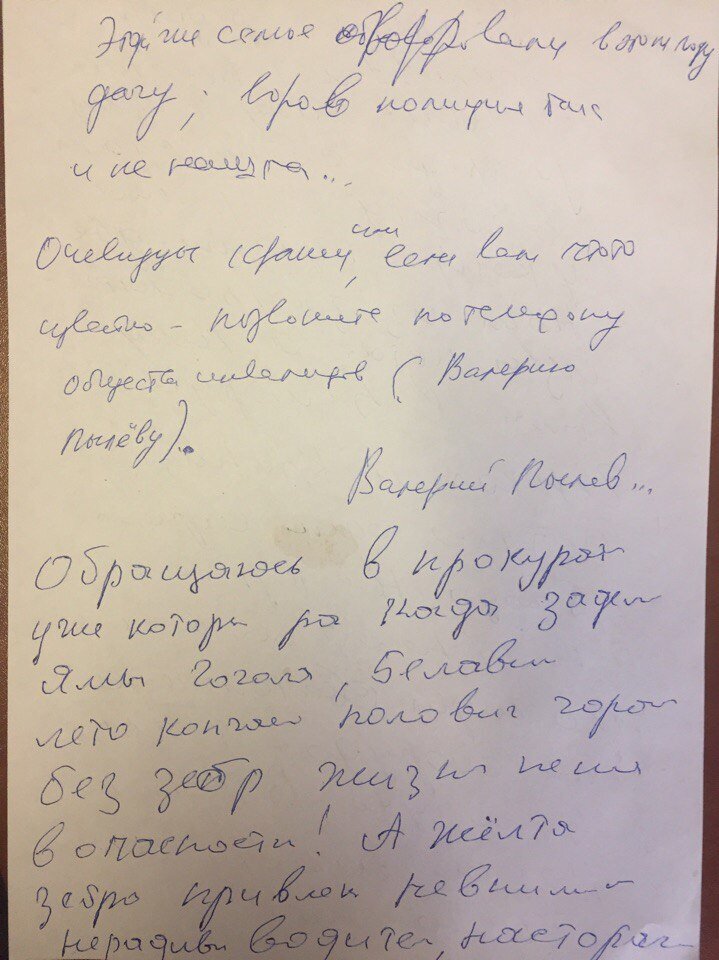 Этой же семье обворовали в этом году
дачу; воров полиция так
и не нашла...
Очевидцы кражи, или если вам что-то
известно – позвоните по телефону
общества инвалидов (Валерию
Пылёву).
Валерий Пылев...
Обращаюсь в прокурат
уже которы ра Когда заде
Ямы Гоголя, Белавин
лето кончаем половин город
без зебр жизнь пеш
в опасности! А жёлта
зебра привлек невним
неради водител, насторач